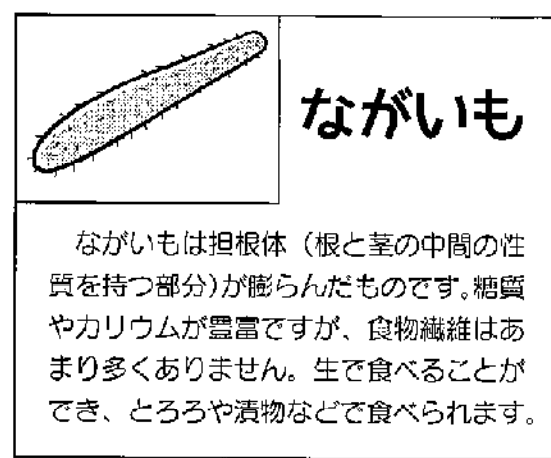 ながいも
ながいもは担根体（根と茎の中間の性
質を持つ部分）が膨らんだものです。糖質
やカリウムが豊富ですが、食物繊維はあ
まり多くありません。生で食べることが
でき、とろろや漬物などで食べられます。